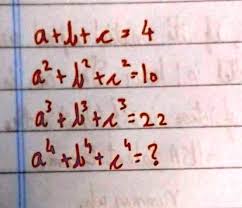 a+b+c=4
a²+b²+c²=10
a³+b³+c³=22
a⁴+b⁴+c⁴=?